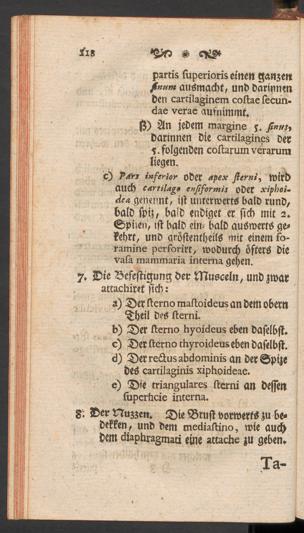 118
partis superioris einen ganzen
sinum ausmacht, und darinnen
den cartilaginem costae secun-
dae verae aufnimmt.
β) An jedem margine 5. sinus,
darinnen die cartilagines der
5. folgenden costarum verarum
liegen.
c) Pars inferior oder apex sterni, wird
auch cartilago ensiformis oder xiphoi-
dea genennt, ist unterwerts bald rund,
bald spiz, bald endiget er sich mit 2.
Spizen, ist bald ein- bald auswerts ge-
kehrt, und gröstentheils mit einem fo-
ramine perforirt, wodurch öfters die
vasa mammaria interna gehen.
7. Die Befestigung der Musceln, und zwar
attachiret sich:
a) Der sterno mastoideus an dem obern
Theil des sterni.
b) Der sterno hyoideus eben daselbst.
c) Der sterno thyroideus eben daselbst.
d) Der rectus abdominis an der Spize
des cartilaginis xiphoideae.
e) Die triangulares sterni an dessen
superficie interna.
8. Der Nuzzen. Die Brust vorwerts zu be-
dekken, und dem mediastino, wie auch
dem diaphragmati eine attache zu geben.
Ta-